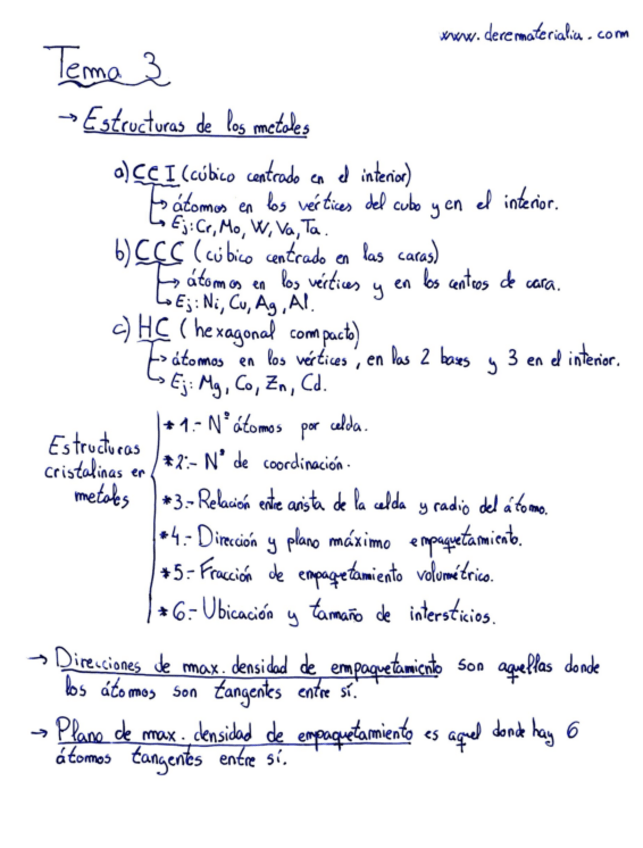 www.derematerialia.com
Tema 3
→ Estructuras de los metales
a) CCI (cúbico centrado en el interior)
↳ átomos en los vértices del cubo y en el interior.
↳ Ej: Cr, Mo, W, Va, Ta.
b) CCC (cúbico centrado en las caras)
↳ átomos en los vértices y en los centros de cara.
↳ Ej: Ni, Cu, Ag, Al.
c) HC (hexagonal compacto)
↳ átomos en los vértices, en las 2 bases y 3 en el interior.
↳ Ej: Mg, Co, Zn, Cd.
Estructuras
cristalinas en
metales
* 1.- Nº átomos por celda.
* 2.- Nº de coordinación.
* 3.- Relación entre arista de la celda y radio del átomo.
* 4.- Dirección y plano máximo empaquetamiento.
* 5.- Fracción de empaquetamiento volumétrico.
* 6.- Ubicación y tamaño de intersticios.
→ Direcciones de max. densidad de empaquetamiento son aquellas donde
los átomos son tangentes entre sí.
→ Plano de max. densidad de empaquetamiento es aquel donde hay 6
átomos tangentes entre sí.